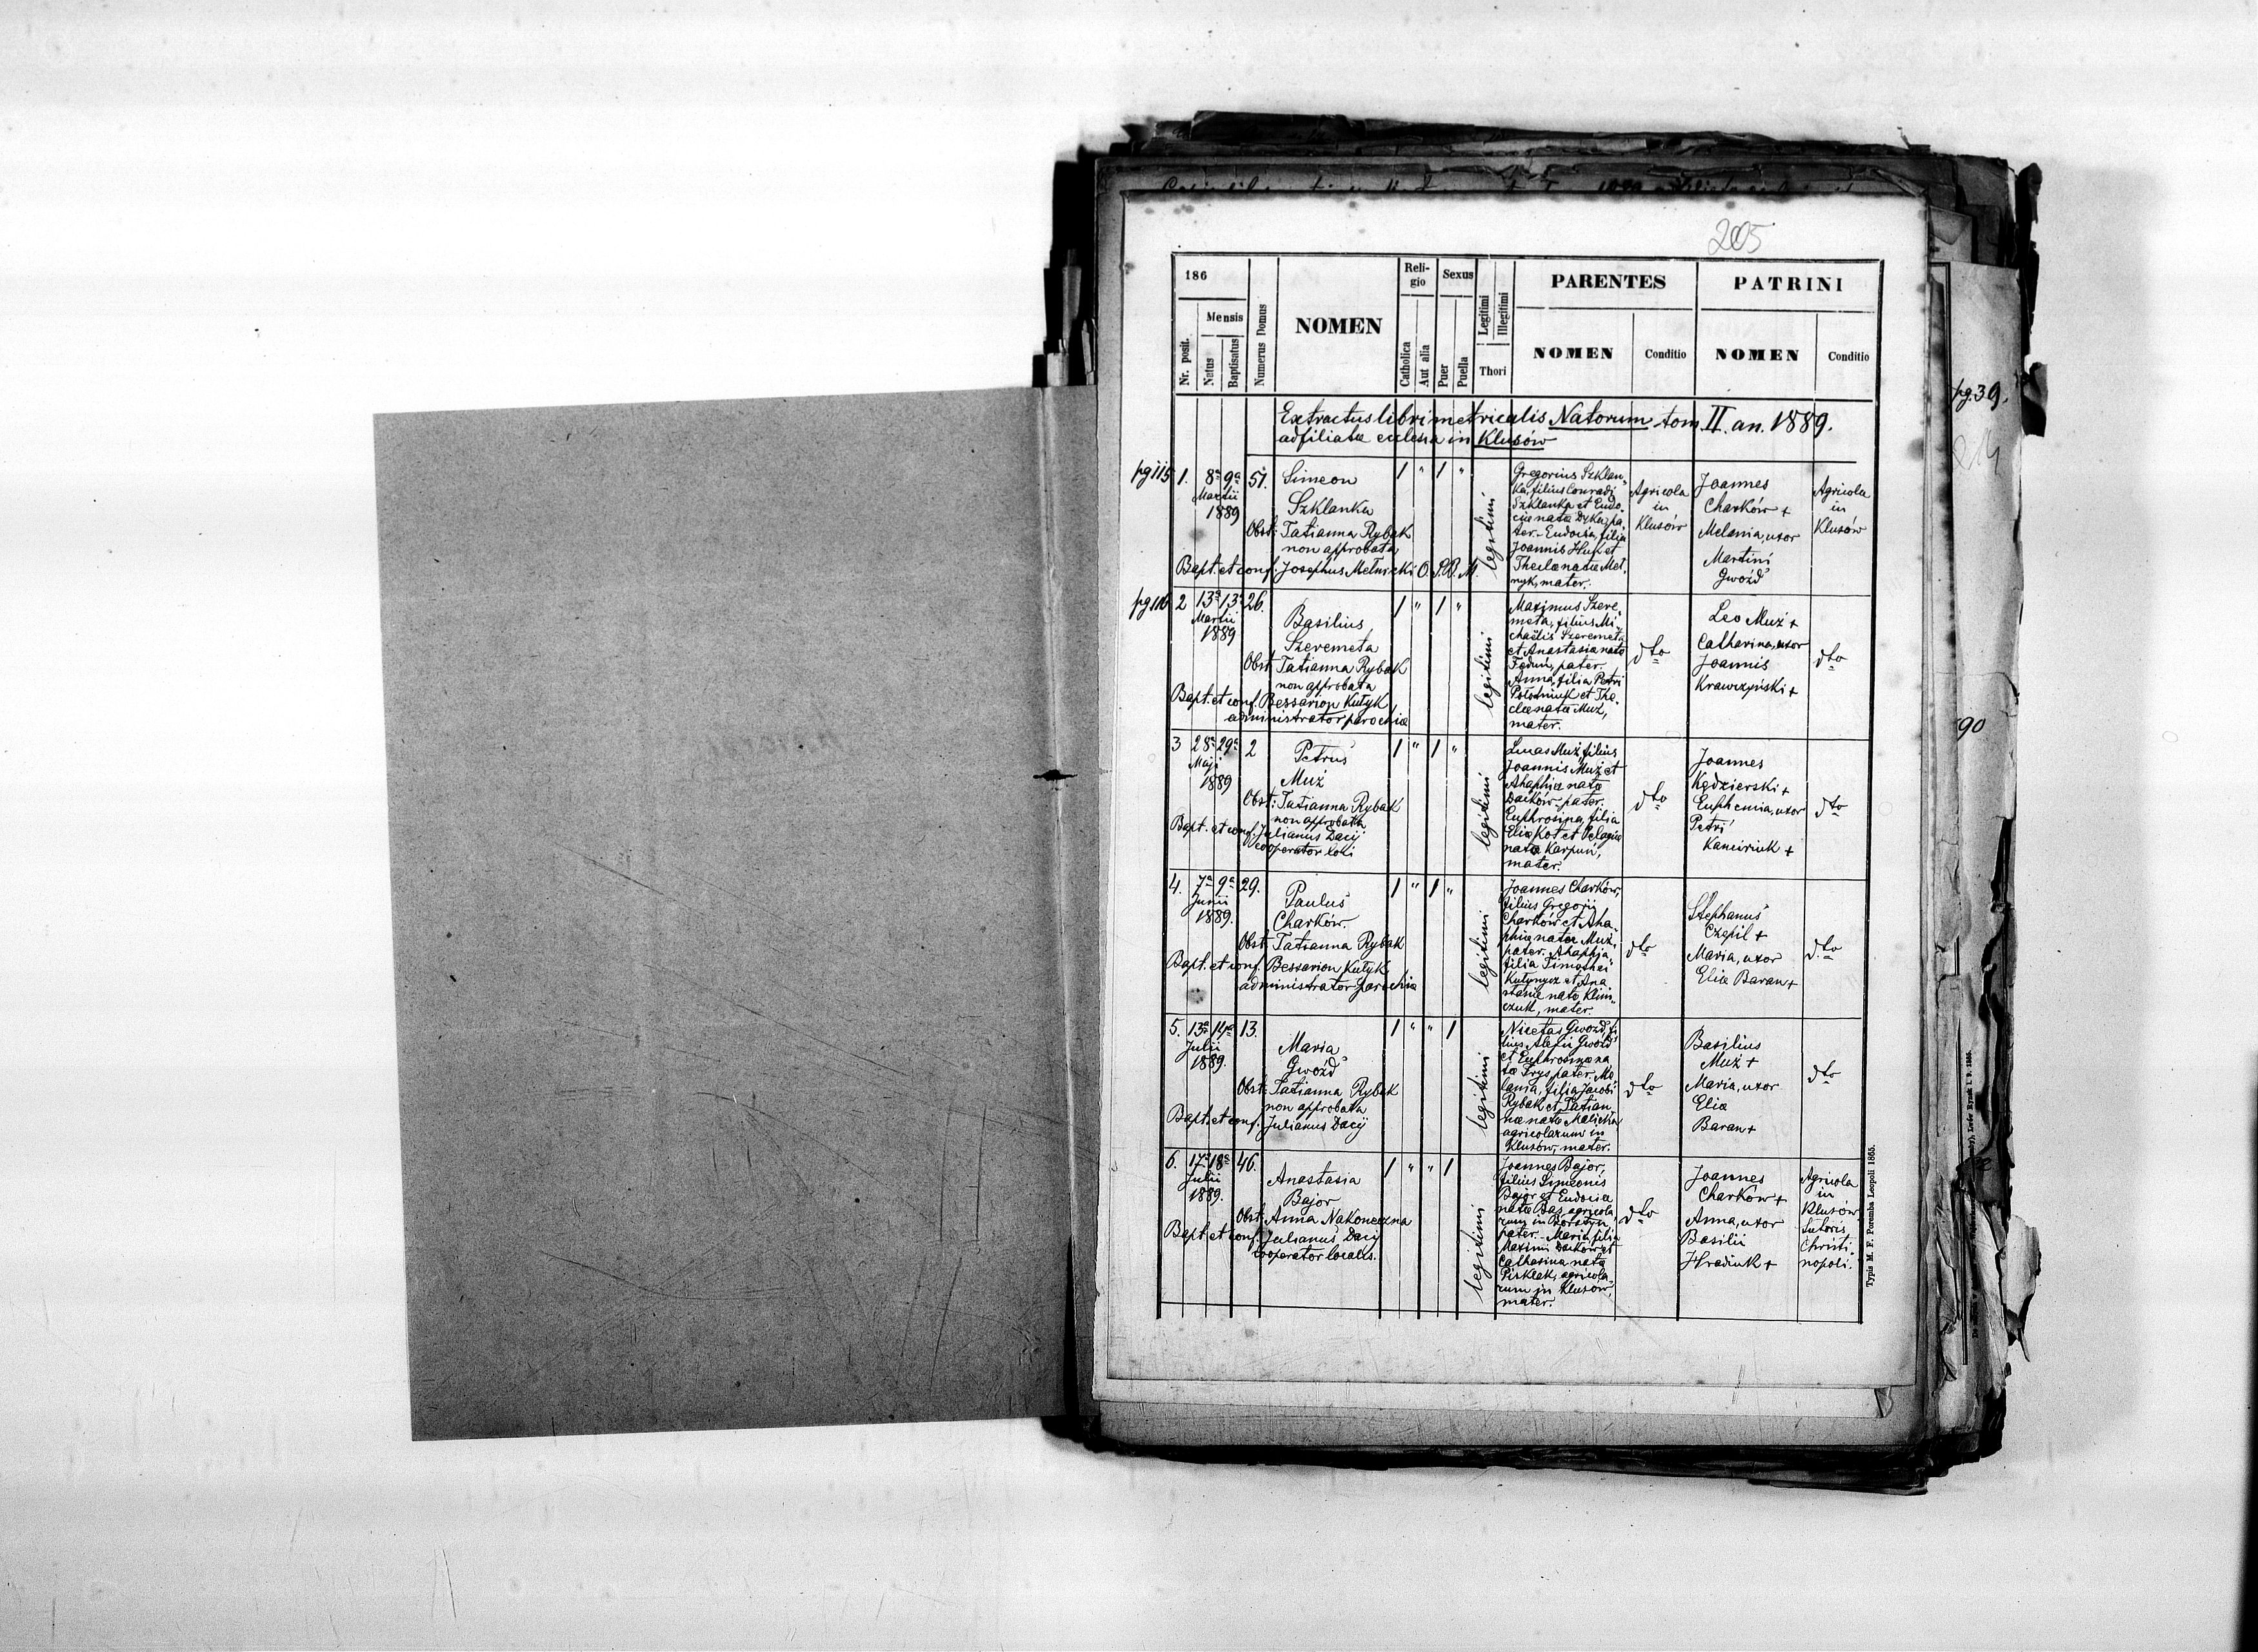 205
186
Mensis
Nr. posit.
Natus
Baptisatus
Numerus Domus
NOMEN
Reli-
gio
Catholica
Aut alia
Sexus
Puer
Puella
Legitimi
Illegitimi
Thori
PARENTES
NOMEN
Conditio
PATRINI
NOMEN
Conditio
Extractus libri metricalis Natorum tom. II. an. 1889.
ad filiatæ eclesia in Klusów
pg 115
1. 8ª 9ª 51.
Martii
1889
Simeon
Szklanka
Obst: Tatianna Rybak
non approbata
Bapt. et conf. Josephus Metnicki O. S. B. M.
1 " 1 "
legitimi
Gregorius Szklan-
ka, filius Conradi
Szklanka et Eudo-
ciæ natæ Dyka, pa-
ter. Eudocia, filia
Joannis Huk et
Theclæ natæ Met-
nyk, mater.
Agricola
in
Klusów
Joannes
Charków +
Melania, uxor
Martini
Gwóźd
Agricola
in
Klusów
pg 116
2 13ª 13ª 26.
Martii
1889
Basilius
Szeremeta
Obst: Tatianna Rybak
non approbata
Bapt. et conf. Bessarion Kutyk
administrator parochiæ
1 " 1 "
legitimi
Maximus Szere-
meta, filius Mi-
chaëlis Szeremeta
et Anastasia nata
Fedun, pater.
Anna, filia Petri
Potodniuk et The-
clæ natæ Muź,
mater.
dto
Leo Muź +
Catharina, uxor
Joannis
Krawczyński +
dto
3 28ª 29ª 2
Maji
1889
Petrus
Muź
Obst: Tatianna Rybak
non approbata
Bapt. et conf. Julianus Dacij
cooperator loci
1 " 1 "
legitimi
Lucas Muź filius
Joannis Muź et
Ahaphiæ natæ
Dacków pater.
Euphrosina, filia
Eliæ Kot et Pelagiæ
natæ Karpuń,
mater.
dto
Joannes
Kędzierski +
Euphemia, uxor
Petri
Kanciriuk +
dto
4. 7ª 9ª 29.
Junii
1889.
Paulus
Charków.
Obst: Tatianna Rybak
Bapt. et conf. Bessarion Kutyk
administrator parochiæ
1 " 1 "
legitimi
Joannes Charków,
filius Gregorij
Charków et Aha-
phiæ natæ Muź,
pater. Ahaphia
filia Timothei
Kutynycz et Ana
stasiæ natæ Klim-
czuk, mater.
dto
Stephanus
Czepil +
Maria, uxor
Eliæ Baran +
dto
5. 13ª 14ª 13.
Julii
1889.
Maria
Gwóźd
Obst: Tatianna Rybak
non approbata
Bapt. et conf. Julianus Dacij
1 " " 1
legitimi
Nicetas Gwóźd, fi-
lius Alexii Gwóźd
et Euphrosinæ na
tæ Frys pater. Me
lania, filia Jacobi
Rybak et Tatian-
næ natæ Malicha
agricolarum in
Klusów, mater.
dto
Basilius
Muź +
Maria, uxor
Eliæ
Baran +
dto
6. 17ª 18ª 46.
Julii
1889.
Anastasia
Bajor
Obst: Anna Nakoneczna
Bapt. et conf. Julianus Dacij
cooperator localis.
1 " " 1
legitimi
Joannes Bajor,
filius Simeonis
Bajor et Eudociæ
natæ Bas, agricola
rum in
pater. Maria, filia
Maximi Dacków et
Catharina nata
agricola-
rum in Klusów,
mater.
dto
Joannes
Charków +
Anna, uxor
Basilii
Hradiuk +
Agricola
in
Klusów
Sutoris
Christi-
nopoli.
Typis M. F. Poremba Leopoli 1865.
pg. 39.
90